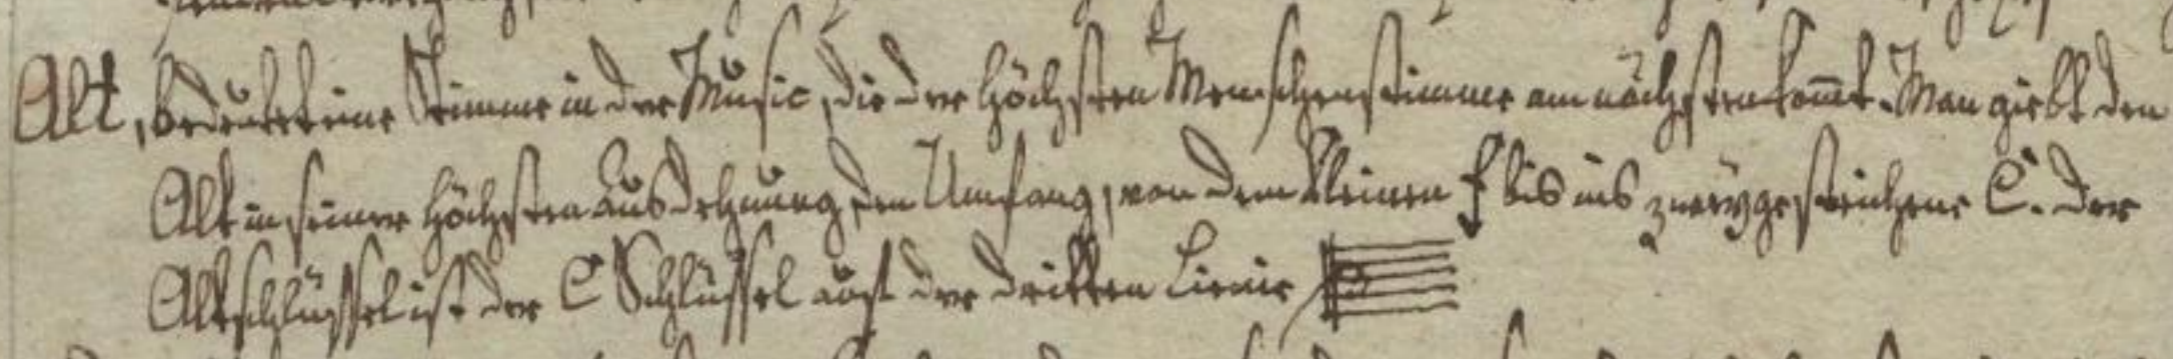 Alt, bedeutet eine Stimme in der Music, die der höchsten Menschenstimme am nächsten kom̅t. Man giebt den
Alt in seiner höchsten Ausdehnung den Umfang, von dem kleinen f bis ins zweÿgestrichene C. Der
Altschlüssel ist der C Schlüssel auf der dritten Linie